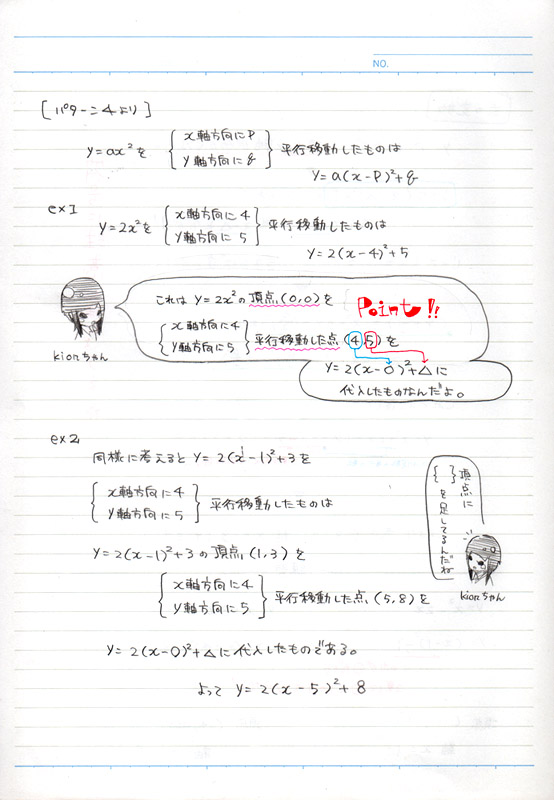 NO.
[パターン4より]
y=ax²を { x軸方向にp y軸方向にq } 平行移動したものは
y=a(x-p)²+q
ex1
y=2x²を { x軸方向に4 y軸方向に5 } 平行移動したものは
y=2(x-4)²+5
これは y=2x²の頂点(0,0)を
Point!!
{ x軸方向に4 y軸方向に5 } 平行移動した点(4,5)を
y=2(x-○)²+△に
代入したものなんだよ。
kionちゃん
ex2
同様に考えると y=2(x-1)²+3を
{ x軸方向に4 y軸方向に5 } 平行移動したものは
y=2(x-1)²+3の頂点(1,3)を
{ x軸方向に4 y軸方向に5 } 平行移動した点(5,8)を
y=2(x-○)²+△に代入したものである。
よって y=2(x-5)²+8
頂点に
{ }を足してるんだね
kionちゃん